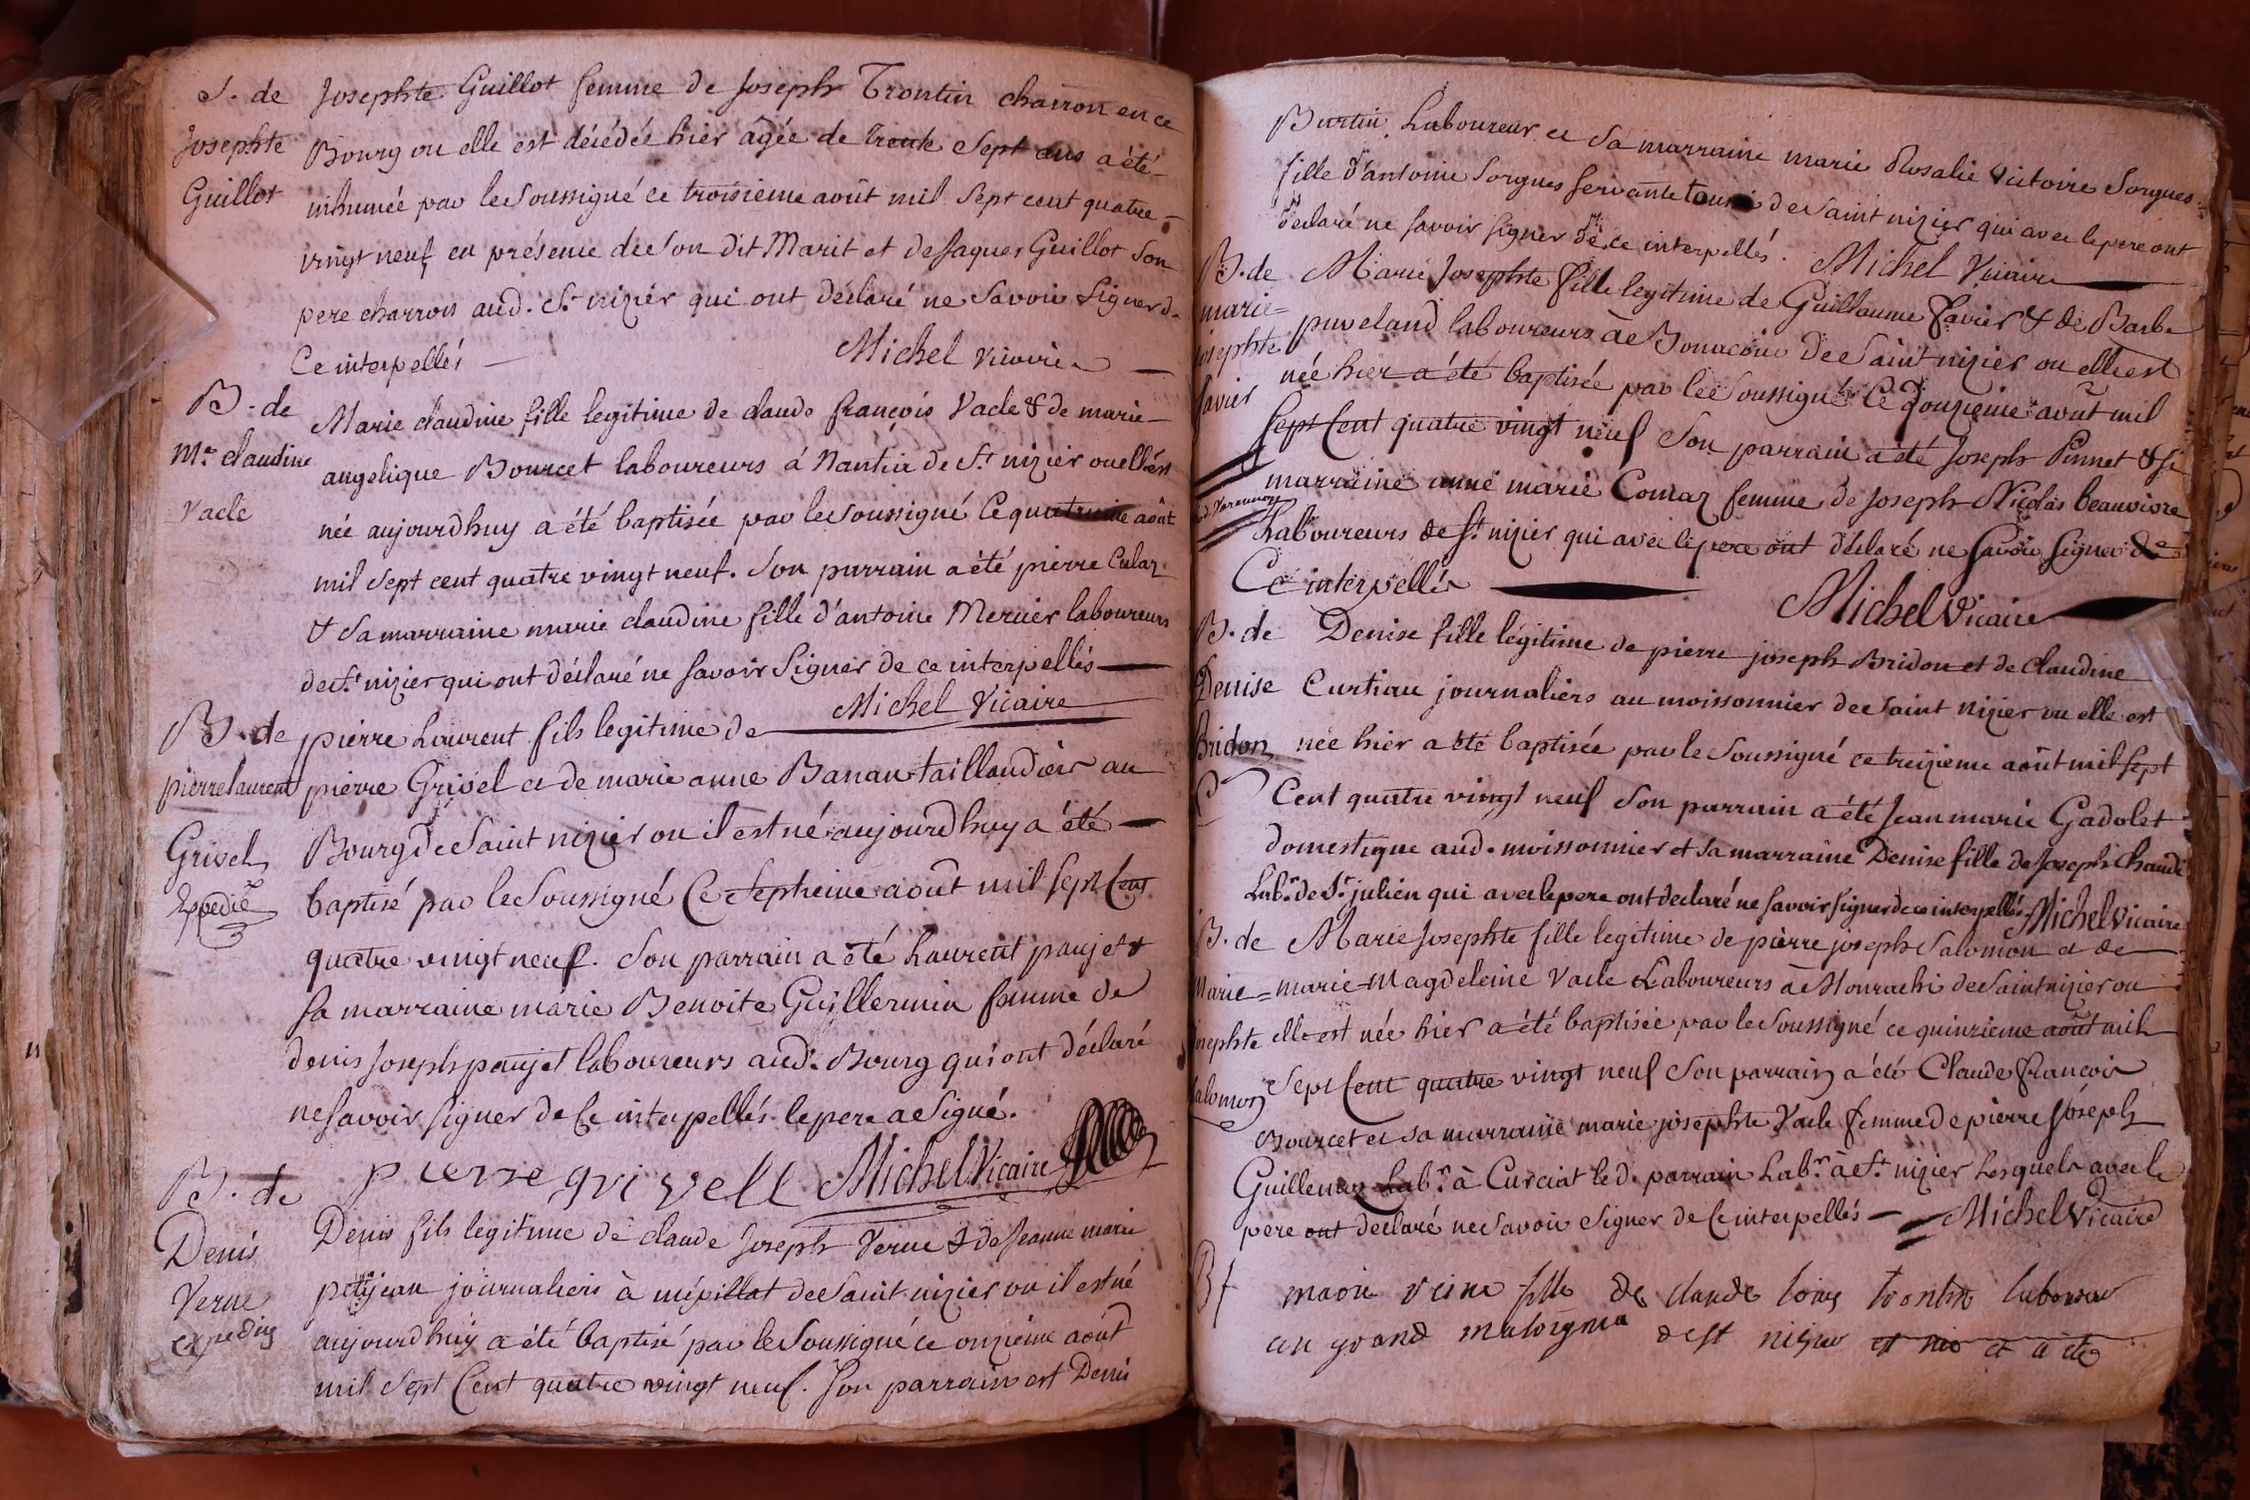 S. de
Josephte
Guillot
Josephte Guillot femme de Joseph Trontin charron en ce
Bourg ou elle est décédée hier agée de trente Sept ans a été
inhumée par le Soussigné ce troisieme août mil Sept cent quatre
vingt neuf en présence de Son dit Marit et de Jaques Guillot Son
pere charron aud. St. nizier qui ont déclaré ne Savoir Signer d
Ce interpellés
Michel Vicaire
B. de
Mie claudine
Vacle
Marie claudine fille legitime de claude françois Vacle & de marie
angelique Bourcet laboureurs à Nantia de St. nizier ou elle est
née aujourdhuy a été baptisée par le Soussigné Ce quatrieme août
mil Sept cent quatre vingt neuf. Son parrain a été pierre Culaz
& Sa marraine marie claudine fille d'antoine Mercier laboureurs
de St. nizier qui ont déclaré ne Savoir Signer de ce interpellés
Michel Vicaire
B. de
pierre laurent
Grivel
Expedié
pierre Laurent fils legitime de
pierre Grivel et de marie anne Banan taillandier au
Bourg de Saint nizier ou il est né aujourdhuy a été
baptisé par le Soussigné Ce Septieme août mil Sept Cent
quatre vingt neuf. Son parrain a été Laurent paujet &
Sa marraine marie Benoite Guillermin femme de
denis Joseph paujet laboureurs aud. Bourg qui ont déclaré
ne Savoir Signer de Ce interpellés le pere a Signé.
pierre grivell Michel Vicaire
B. de
Denis
Verne
Denis fils legitime de claude Joseph Verne & de Jeanne marie
petijean journaliers à mépillat de Saint nizier ou il est né
aujourdhuy a été baptisé par le Soussigné ce onzieme août
mil Sept Cent quatre vingt neuf. Son parrain est Denis
Burtin Laboureur et Sa marraine marie Rosalie Victoire Sorgues
fille d'antoine Sorgues Servante de Saint nizier qui avec le pere ont
declaré ne Savoir Signer de ce interpellés. Michel Vicaire
B. de
marie=
josephte
favier
Marie Josephte fille legitime de Guillaume favier & de Barbe
puveland laboureurs de Bonacour de Saint nizier ou elle est
née hier a été baptisée par le Soussigné Ce douzieme août mil
Sept Cent quatre vingt neuf Son parrain a été Joseph Pinnet & Sa
marraine anne marie Comaz femme de Joseph Nicolas beauvivre
Laboureurs de St. nizier qui avec le pere ont déclaré ne Savoir Signer de
Ce interpellés
Michel Vicaire
B. de
Denise
Bridon
Denise fille légitime de pierre joseph Bridon et de claudine
Curtiau journaliers au moissonnier de Saint nizier ou elle est
née hier a été baptisée par le Soussigné ce treizieme août mil Sept
Cent quatre vingt neuf Son parrain a été Jean marie Gadolet
domestique aud. moissonnier et Sa marraine Denise fille de Joseph Chaudi
Labr. de St. julien qui avec le pere ont declaré ne Savoir Signer de ce interpellés. Michel Vicaire
B. de
Marie=
josephte
Salomon
Marie Josephte fille legitime de pierre joseph Salomon et de
marie Magdeleine Vacle Laboureurs à Mourachi de Saint nizier ou
elle est née hier a été baptisée par le Soussigné ce quinzieme août mil
Sept Cent quatre vingt neuf Son parrain a été Claude François
Bourcet et Sa marraine marie josephte Vacle femme de pierre Joseph
Guillemin Labr. à Curciat le d. parrain Labr. à St. nizier Lesquels avec le
pere ont declaré ne Savoir Signer de Ce interpellés Michel Vicaire
marie reine fille de claude Trontin laboureur
au grand de St nizier est née et a été